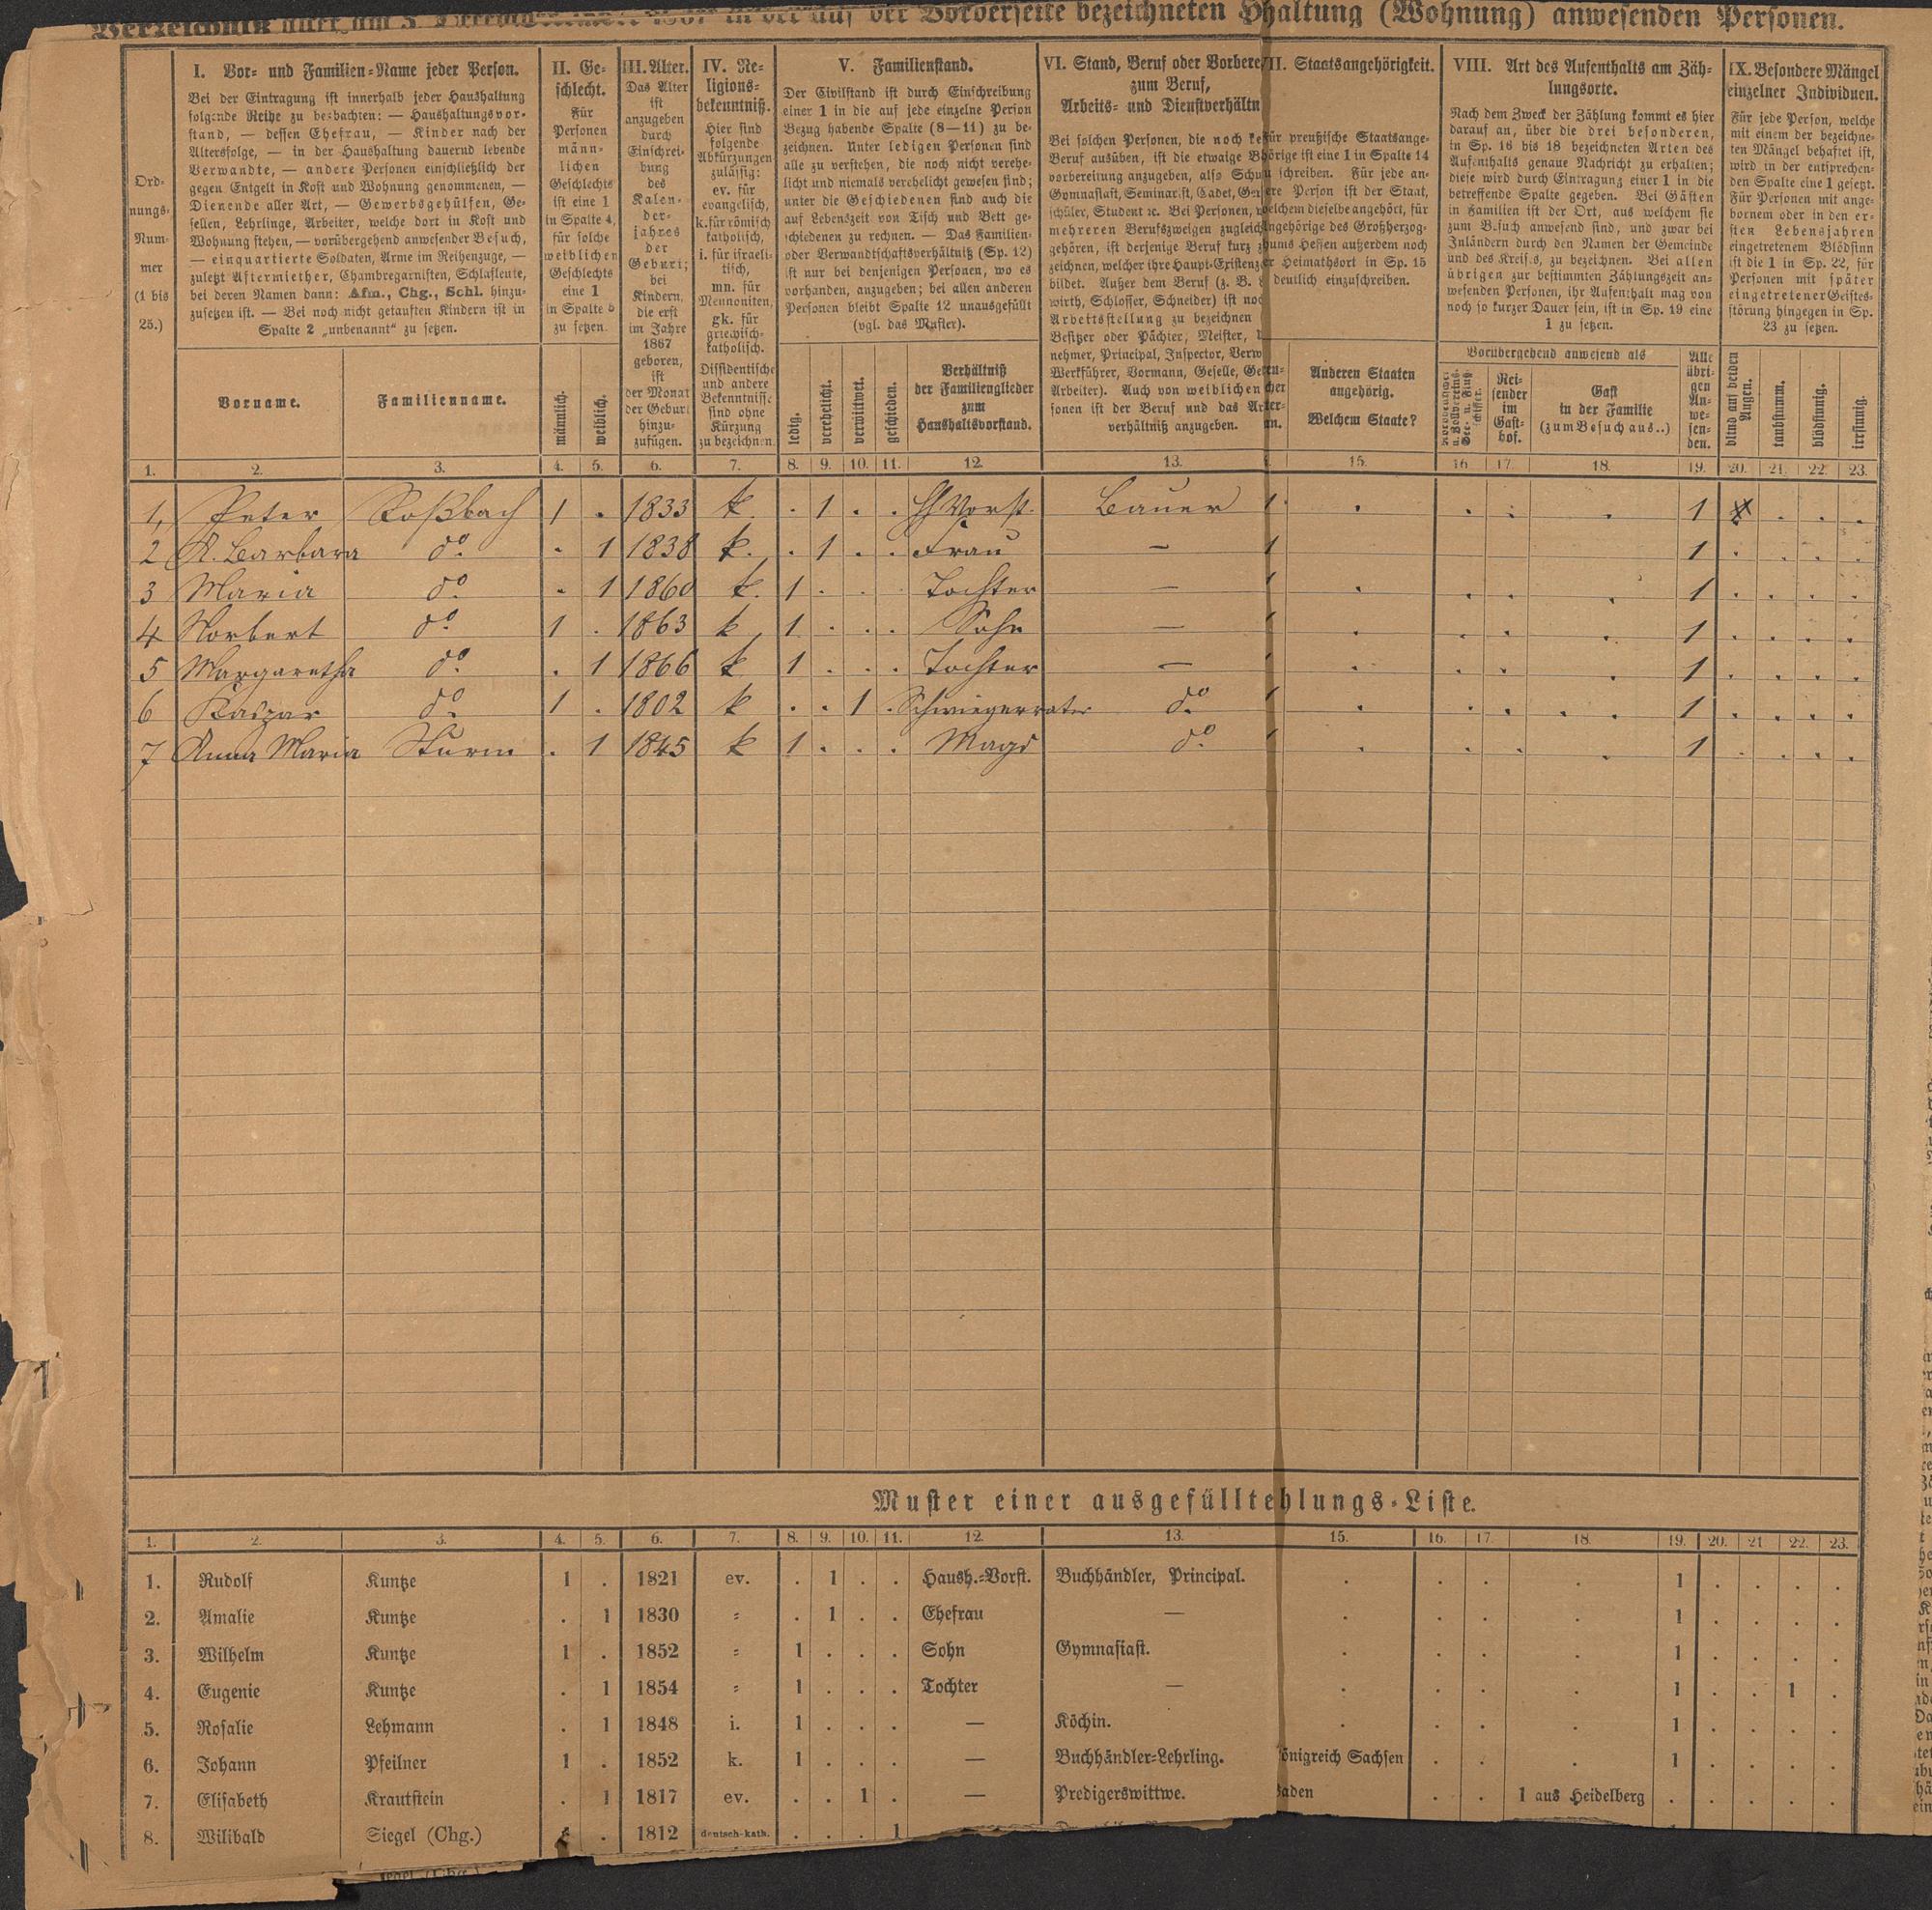 Verzeichniß aller am 3. December 1867 in der auf der Vorderseite bezeichneten Hhaltung (Wohnung) anwesenden Personen.
Ord-
nungs-
Num-
mer
(1 bis
25.)
I. Vor- und Familien-Name jeder Person.
Bei der Eintragung ist innerhalb jeder Haushaltung
folgende Reihe zu beobachten: — Haushaltungsvor-
stand, — dessen Ehefrau, — Kinder nach der
Altersfolge, — in der Haushaltung dauernd lebende
Verwandte, — andere Personen einschließlich der
gegen Entgelt in Kost und Wohnung genommenen, —
Dienende aller Art, — Gewerbsgehülfen, Ge-
sellen, Lehrlinge, Arbeiter, welche dort in Kost und
Wohnung stehen, — vorübergehend anwesender Besuch,
— einquartierte Soldaten, Arme im Reihenzuge, —
zuletzt Aftermiether, Chambregarnisten, Schlafleute,
bei deren Namen dann: Afm., Chg., Schl. hinzu-
zusetzen ist. — Bei noch nicht getauften Kindern ist in
Spalte 2 „unbenannt“ zu setzen.
Vorname.
Familienname.
II. Ge-
schlecht.
Für
Personen
männ-
lichen
Geschlechts
ist eine 1
in Spalte 4,
für solche
weiblichen
Geschlechts
eine 1
in Spalte 5
zu setzen.
männlich.
weiblich.
III. Alter.
Das Alter
ist
anzugeben
durch
Einschrei-
bung
des
Kalen-
der-
jahres
der
Geburt;
bei
Kindern,
die erst
im Jahre
1867
geboren,
ist
der Monat
der Geburt
hinzu-
zufügen.
IV. Re-
ligions-
bekenntniß.
Hier sind
folgende
Abkürzungen
zulässig:
ev. für
evangelisch,
k. für römisch
katholisch,
i. für israeli-
tisch,
mn. für
Mennoniten,
gk. für
griechisch-
katholisch.
Dissidentische
und andere
Bekenntnisse
sind ohne
Kürzung
zu bezeichnen.
V. Familienstand.
Der Civilstand ist durch Einschreibung
einer 1 in die auf jede einzelne Person
Bezug habende Spalte (8—11) zu be-
zeichnen. Unter ledigen Personen sind
alle zu verstehen, die noch nicht verehe-
licht und niemals verehelicht gewesen sind;
unter die Geschiedenen sind auch die
auf Lebenszeit von Tisch und Bett ge-
schiedenen zu rechnen. — Das Familien-
oder Verwandtschaftsverhältniß (Sp. 12)
ist nur bei denjenigen Personen, wo es
vorhanden, anzugeben; bei allen anderen
Personen bleibt Spalte 12 unausgefüllt
(vgl. das Muster).
ledig.
verehelicht.
verwittwet.
geschieden.
Verhältniß
der Familienglieder
zum
Haushaltsvorstand.
VI. Stand, Beruf oder Vorbere
zum Beruf,
Arbeits- und Dienstverhältn
Bei solchen Personen, die noch ke
Beruf ausüben, ist die etwaige B
vorbereitung anzugeben, also Schu
Gymnasiast, Seminarist, Cadet, Ge
schüler, Student ec. Bei Personen,
mehreren Berufszweigen zugleich
gehören, ist derjenige Beruf kurz
zeichnen, welcher ihre Haupt-Existenz
bildet. Außer dem Beruf (z. B.
wirth, Schlosser, Schneider) ist noc
Arbeitsstellung zu bezeichnen
Besitzer oder Pächter, Meister,
nehmer, Principal, Inspector, Verw
Werkführer, Vormann, Geselle, Ge
Arbeiter). Auch von weiblichen
sonen ist der Beruf und das Ar
verhältniß anzugeben.
II. Staatsangehörigkeit.
für preußische Staatsange-
hörige ist eine 1 in Spalte 14
schreiben. Für jede an-
ere Person ist der Staat,
welchem dieselbe angehört, für
Angehörige des Großherzog-
thums Hessen außerdem noch
er Heimathsort in Sp. 15
deutlich einzuschreiben.
Anderen Staaten
angehörig.
Welchem Staate?
VIII. Art des Aufenthalts am Zäh-
lungsorte.
Nach dem Zweck der Zählung kommt es hier
darauf an, über die drei besonderen,
in Sp. 16 bis 18 bezeichneten Arten des
Aufenthalts genaue Nachricht zu erhalten;
diese wird durch Eintragung einer 1 in die
betreffende Spalte gegeben. Bei Gästen
in Familien ist der Ort, aus welchem sie
zum Besuch anwesend sind, und zwar bei
Inländern durch den Namen der Gemeinde
und des Kreises, zu bezeichnen. Bei allen
übrigen zur bestimmten Zählungszeit an-
wesenden Personen, ihr Aufenthalt mag von
noch so kurzer Dauer sein, ist in Sp. 19 eine
1 zu setzen.
Vorübergehend anwesend als
Rei-
sender
im
Gast-
hof.
Gast
in der Familie
(zum Besuch aus..)
Alle
übri-
gen
An-
we-
sen-
den.
IX. Besondere Mängel
einzelner Individuen.
Für jede Person, welche
mit einem der bezeichne-
ten Mängel behaftet ist,
wird in der entsprechen-
den Spalte eine 1 gesetzt.
Für Personen mit ange-
bornem oder in den er-
sten Lebensjahren
eingetretenem Blödsinn
ist die 1 in Sp. 22, für
Personen mit später
eingetretener Geistes-
störung hingegen in Sp.
23 zu setzen.
blind auf beiden
Augen.
taubstumm.
blödsinnig.
irrsinnig.
1. 2. 3. 4. 5. 6. 7. 8. 9. 10. 11. 12. 13. 15. 16. 17. 18. 19. 20. 21. 22. 23.
1, Peter Roßbach 1 . 1833 k. . 1 . . HVorst. Bauer 1 . . . . 1 . . .
2 A. Barbara do . 1 1838 k. . 1 . . Frau — 1 1 . . . .
3 Maria do . 1 1860 k. 1 . . . Tochter — 1 . . . . 1 . . . .
4 Norbert do 1 . 1863 k 1 . . . Sohn — 1 . . . . 1 . . . .
5 Margaretha do . 1 1866 k 1 . . . Tochter — 1 . . . . 1 . . . .
6 Kaspar do 1 . 1802 k . . 1 . Schwiegervater do 1 . . . . 1 . . . .
7 Anna Maria Sturm . 1 1845 k 1 . . . Magd do 1 . . . . 1 . . . .
Muster einer ausgefülltehlungs-Liste.
1. 2. 3. 4. 5. 6. 7. 8. 9. 10. 11. 12. 13. 15. 16. 17. 18. 19. 20. 21 22. 23.
1. Rudolf Kuntze 1 . 1821 ev. . 1 . . Haush.-Vorst. Buchhändler, Principal. . . . . 1 . . . .
2. Amalie Kuntze . 1 1830 = . 1 . . Ehefrau — . . . . 1 . . . .
3. Wilhelm Kuntze 1 . 1852 = 1 . . . Sohn Gymnasiast. . . . . 1 . . . .
4. Eugenie Kuntze . 1 1854 = 1 . . . Tochter — . . . . 1 . . 1 .
5. Rosalie Lehmann . 1 1848 i. 1 . . . — Köchin. . . . . 1 . . . .
6. Johann Pfeilner 1 . 1852 k. 1 . . . — Buchhändler-Lehrling. önigreich Sachsen . . . 1 . . . .
7. Elisabeth Krautstein . 1 1817 ev. . . 1 . — Predigerswittwe. Baden . . 1 aus Heidelberg . . . . .
8. Wilibald Siegel (Chg.) . 1812 deutsch-kath. . . . 1